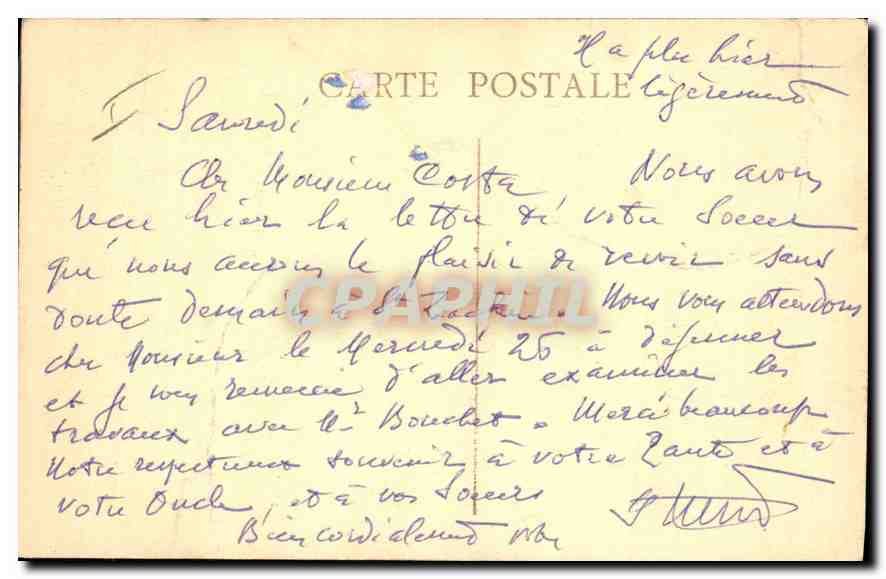 Il a plu hier
CARTE POSTALE légèrement
Samedi
Cher Monsieur Costa Nous avons
reçu hier la lettre de votre Soeur
que nous aurons le plaisir de revoir sans
doute demain à St. Nous vous attendons
cher Monsieur le Mercredi 26 à déjeuner
et je vous remercie d'aller examiner les
travaux avec Mr Bouchet. Merci beaucoup
Notre respectueux souvenir à votre Tante et à
votre Oncle, et à vos Soeurs
Bien cordialement
CPAPHIL